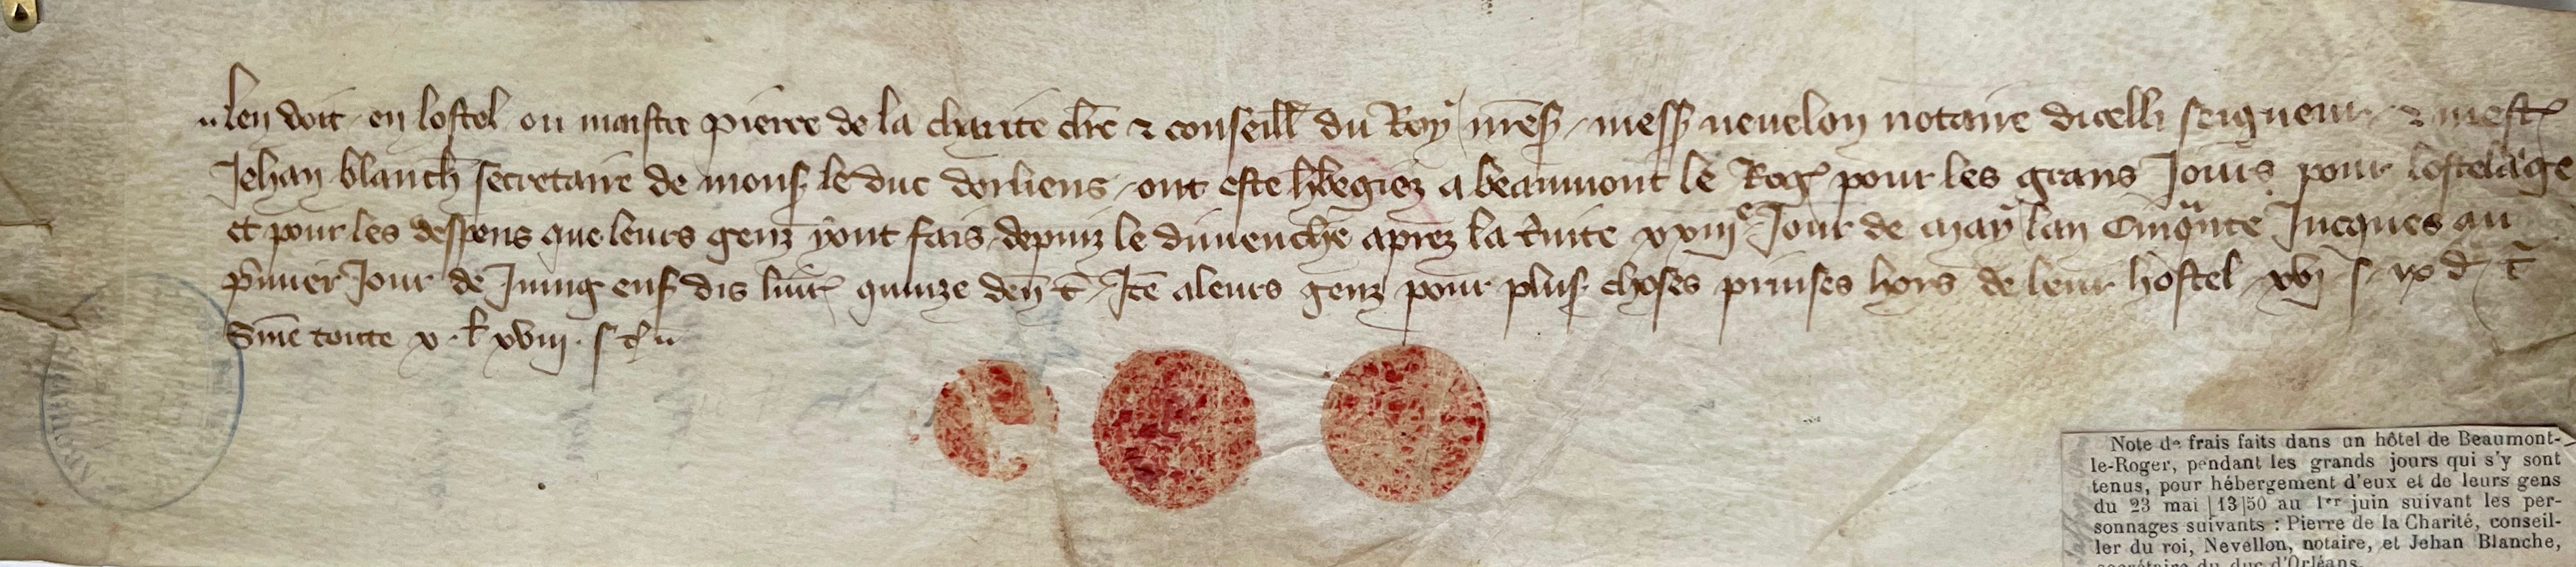 len doit en lostel ou maistre pierre de la charite chr̄e & conseill̄ du Roy mess̄ nevelon notaire dicelli seigneur & mest̄
Jehan blanch̄ secretaire de mons̄ le duc dorliens ont este hb̄egiez a beaumont le Roḡ pour les grans Jours pour lostelage
et pour les despens que leurs genz y ont fais depuiz le dimenche aprez la t̄nite xxiijᵉ Jour de may lan Cinqᵃnte Jucques au
p̄mier Jour de Juing ens̄ dis livr̄ quinze den̄ t̄ Itē a leurs genz pour plus̄ choses prinses hors de leur hostel xvj s ix d t̄
Sm̄e toute x l̄ xviij s t̄
Note de frais faits dans un hôtel de Beaumont-
le-Roger, pendant les grands jours qui s'y sont
tenus, pour hébergement d'eux et de leurs gens
du 23 mai |13|50 au 1ᵉʳ juin suivant les per-
sonnages suivants : Pierre de la Charité, conseil-
ler du roi, Nevellon, notaire, et Jehan Blanche,
secrétaire du duc d'Orléans.